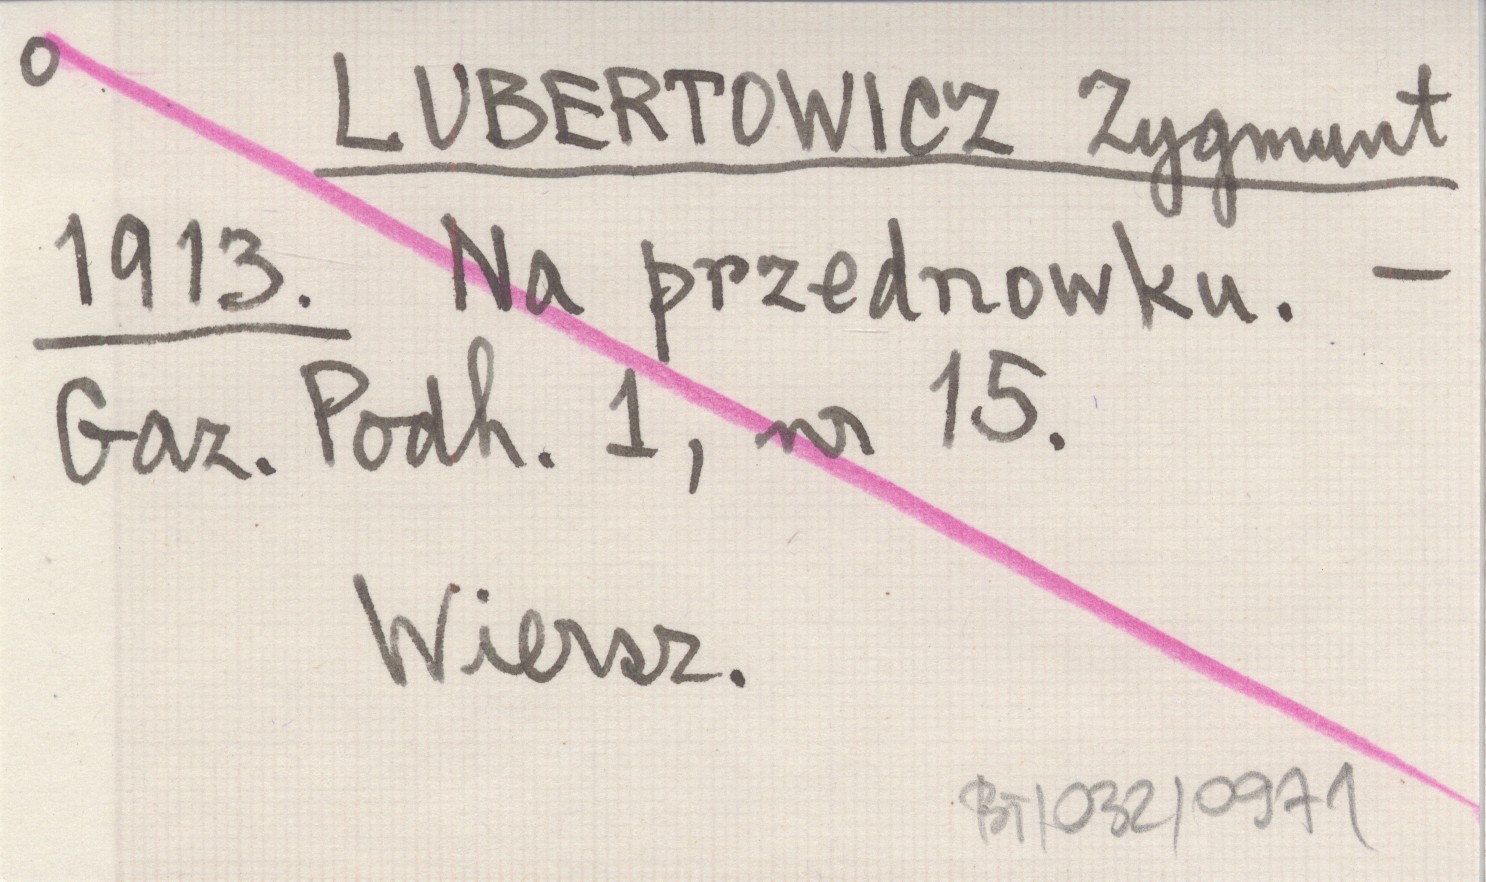 o LUBERTOWICZ Zygmunt
1913. Na przednowku. –
Gaz. Podh. 1, nr 15.
Wiersz.
BT/032/0971